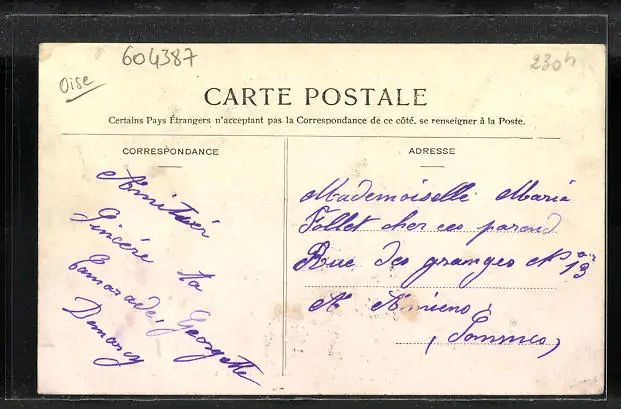 604387
230h
Oise
CARTE POSTALE
Certains Pays Étrangers n'acceptant pas la Correspondance de ce côté, se renseigner à la Poste.
CORRESPONDANCE
Amitiér
Sincére ta
Camarade, Georgette
Demarcy
ADRESSE
Mademoiselle Maria
Follet cher ces parend
Rue des granges N° 13
A Amiens
(Sommes)